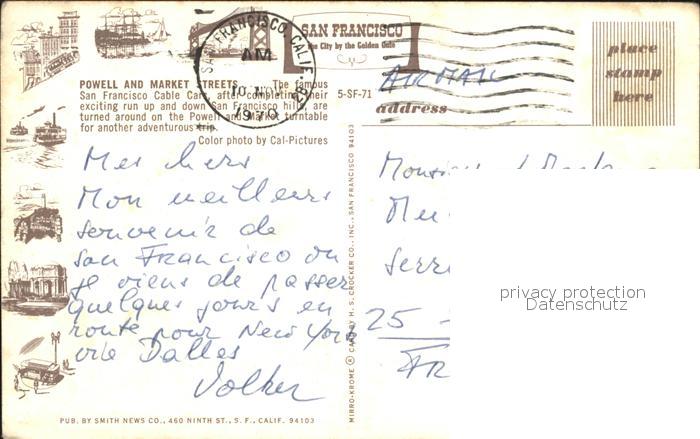 SAN FRANCISCO
The City by the Golden Gate
SAN FRANCISCO, CALIF.
AM
10
1970
POWELL AND MARKET STREETS . . . The famous
San Francisco Cable Cars, after completing their
exciting run up and down San Francisco hills, are
turned around on the Powell and Market turntable
for another adventurous trip.
Color photo by Cal-Pictures
5-SF-71
AIR MAIL
address
place
stamp
here
Mes chers
Mon meilleur
souvenir de
San Francisco où
je viens de passer
quelques jours en
route pour New York
via Dallas
Volker
MIRRO-KROME ® CARD BY H. S. CROCKER CO., INC., SAN FRANCISCO 94103
25 -
FR
privacy protection
Datenschutz
PUB. BY SMITH NEWS CO., 460 NINTH ST., S. F., CALIF. 94103